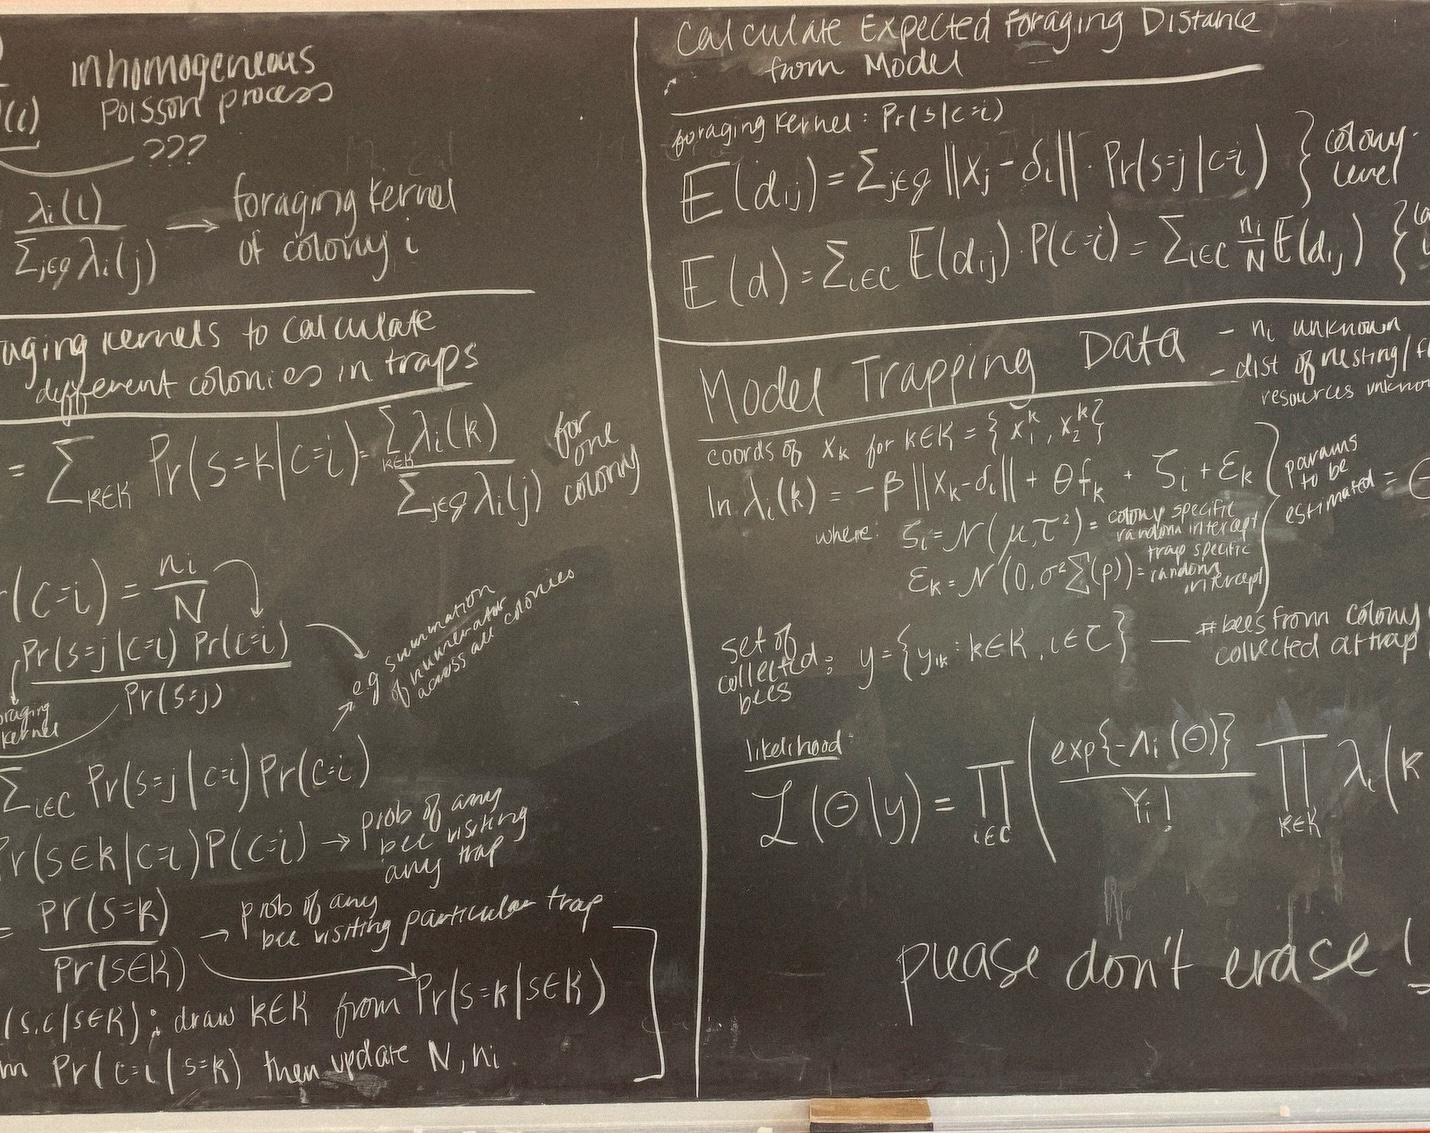 inhomogeneous
Poisson process
???
λi(l)
Σj∈g λi(j)
→ foraging kernel
of colony i
kernels to calculate
different colonies in traps
= Σk∈K Pr(s=k|c=i) = Σk∈K λi(k)
Σj∈g λi(j)
for
one
colony
(c=i) = ni
N
Pr(s=j|c=i) Pr(c=i)
Pr(s=j)
kernel
e.g. summation
of numerator
across all colonies
Σi∈C Pr(s=j|c=i) Pr(c=i)
Pr(s∈k|c=i) P(c=i) → prob of any
bee visiting
any trap
= Pr(s=k)
Pr(s∈K)
→ prob of any
bee visiting particular trap
(s,c|s∈K): draw k∈K from Pr(s=k|s∈K)
Pr(c=i|s=k) then update N, ni
Calculate Expected Foraging Distance
from Model
foraging kernel: Pr(s|c=i)
E(dij) = Σj∈g ||xj - δi|| · Pr(s=j|c=i) } colony-
level
E(d) = Σi∈C E(dij) · P(c=i) = Σi∈C ni/N E(dij) }
Model Trapping Data
- ni unknown
- dist of nesting/
resources
coords of xk for k∈K = {x1^k, x2^k}
ln λi(k) = -β ||xk-δi|| + θfk + ζi + εk
where: ζi = N(μ,τ²) = colony specific
random intercept
εk = N(0, σ²Σ(ρ)) = trap specific
random
intercept
params
to be
estimated =
set of
collected
bees = y = {yik : k∈K, i∈C} — # bees from colony
collected at trap
likelihood:
L(Θ|y) = ∏i∈C ( exp{-Λi(Θ)}
Yi!
∏k∈K λi(k
please don't erase!